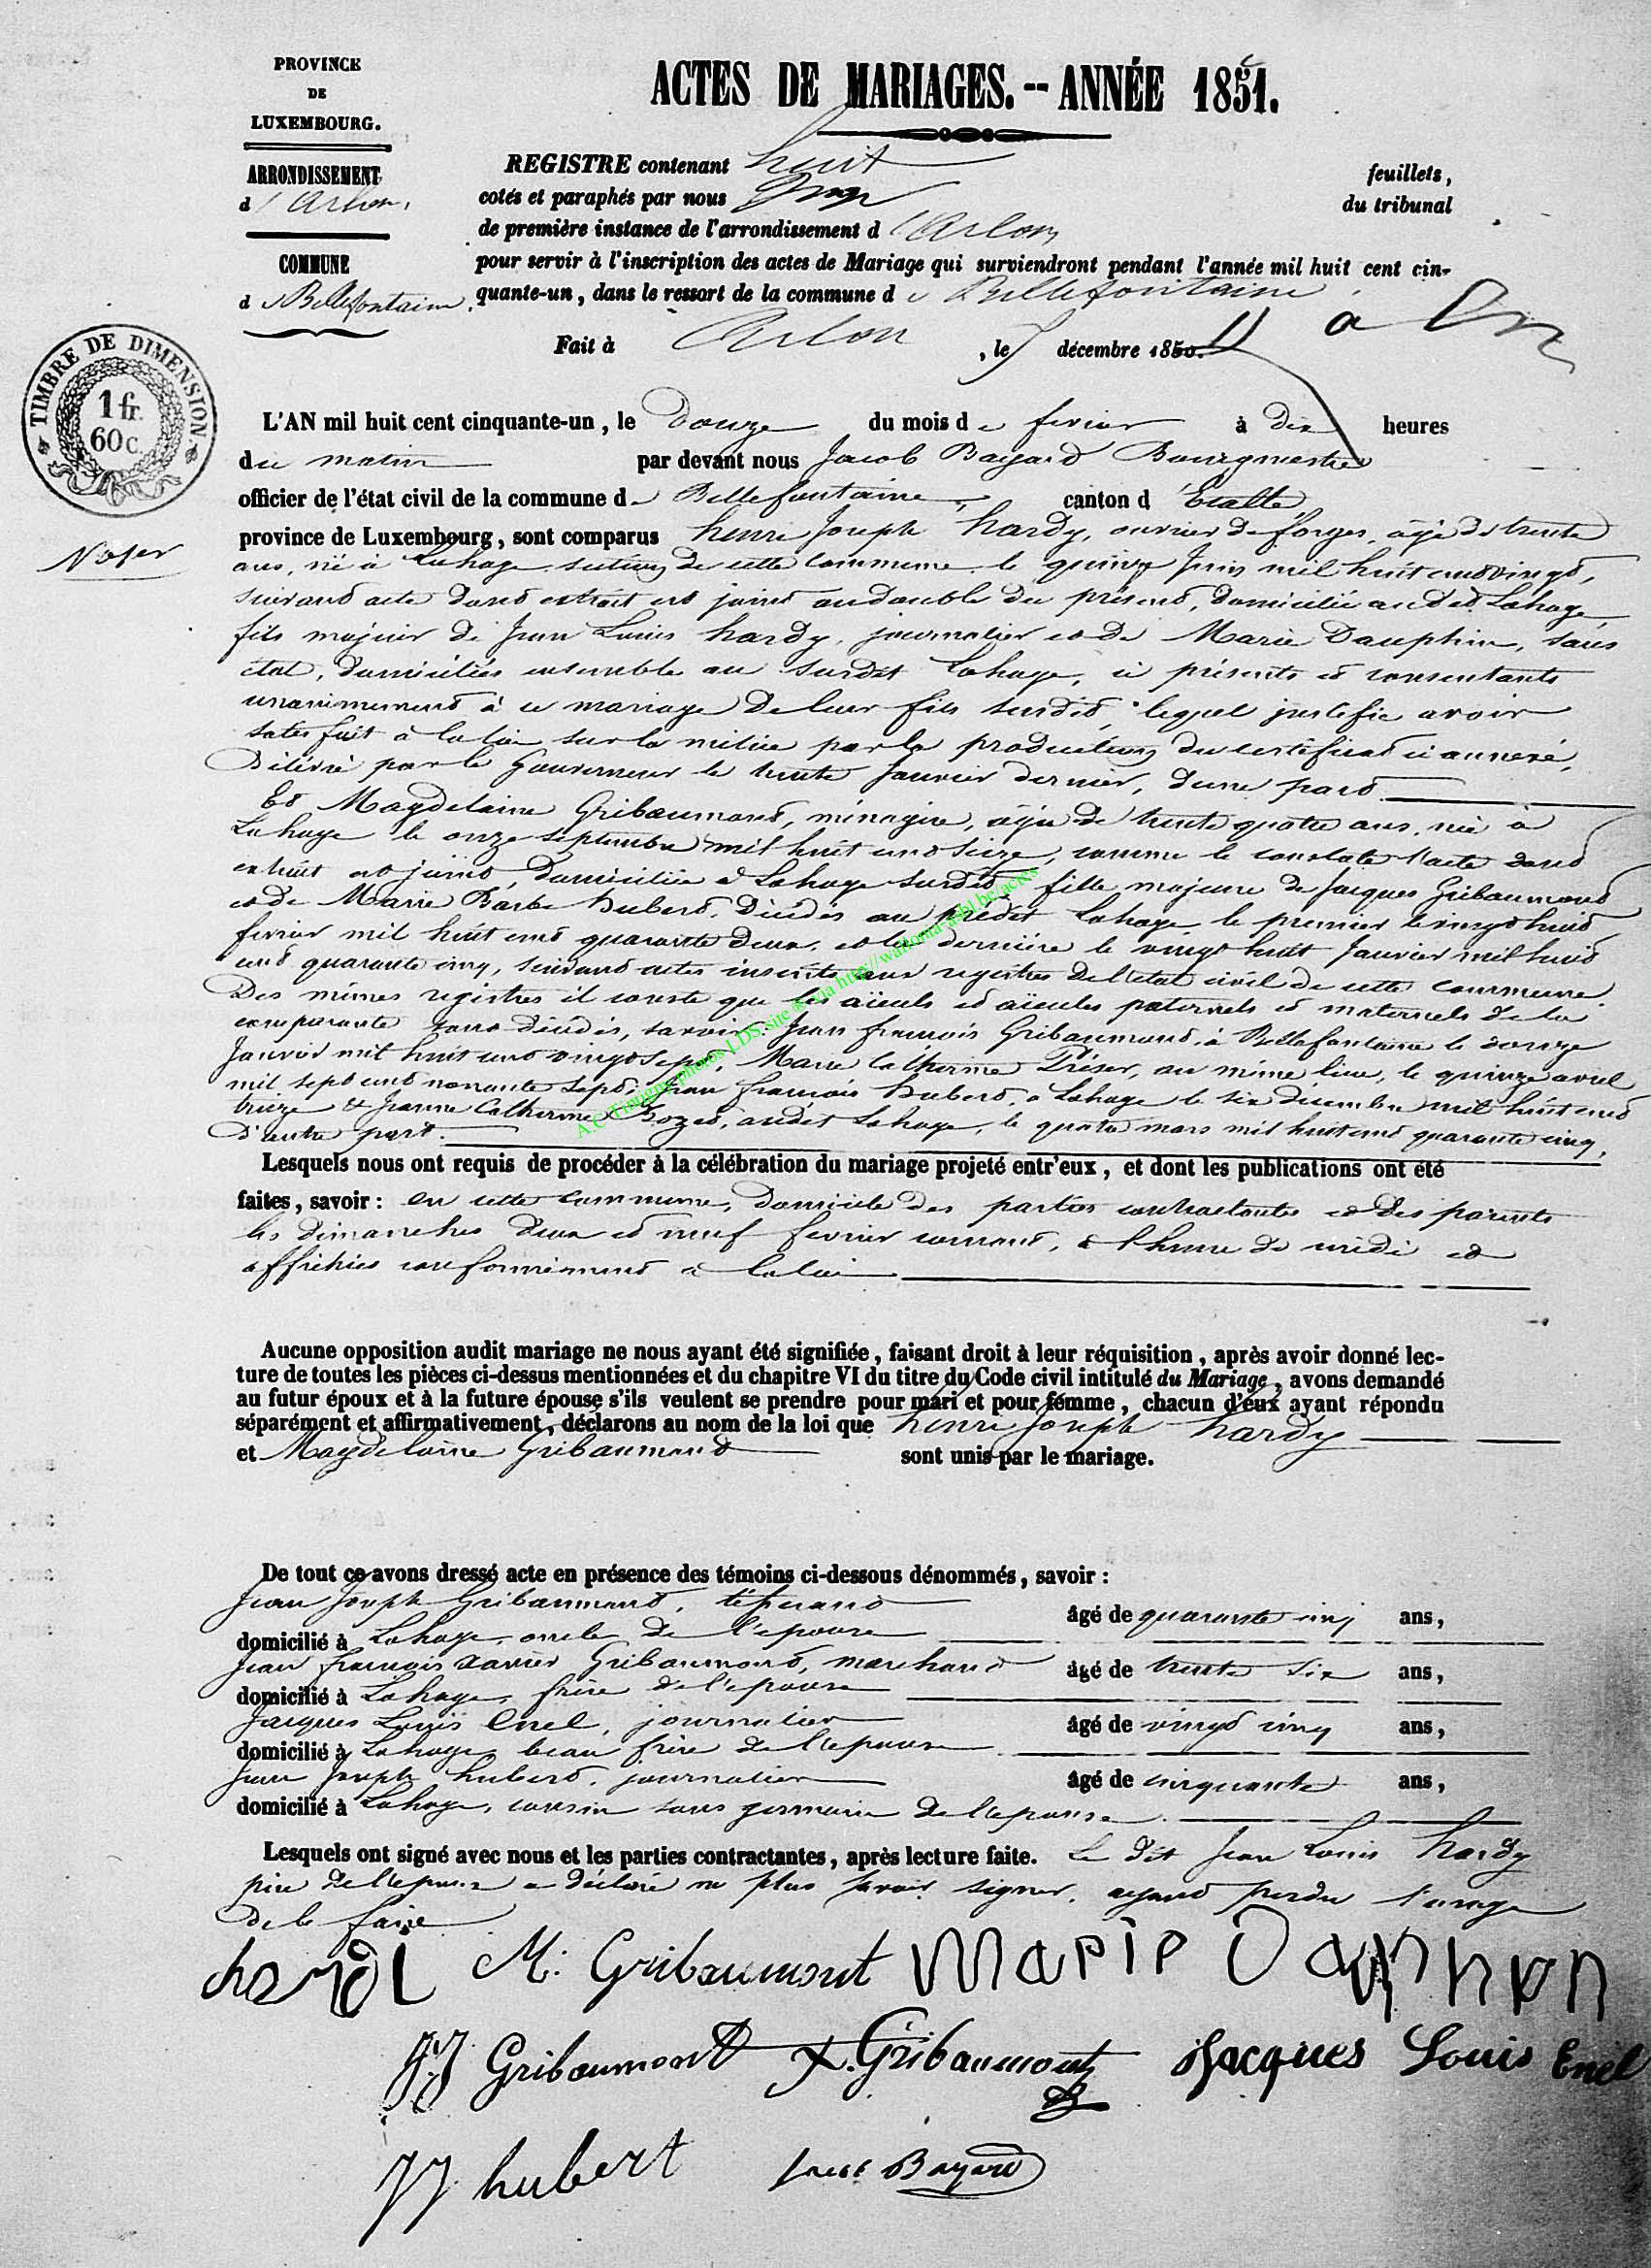 PROVINCE
DE
LUXEMBOURG.
ARRONDISSEMENT
d'Arlon.
COMMUNE
de Bellefontaine.
ACTES DE MARIAGES.-- ANNÉE 1851.
REGISTRE contenant huit feuillets,
cotés et paraphés par nous du tribunal
de première instance de l'arrondissement d'Arlon
pour servir à l'inscription des actes de Mariage qui surviendront pendant l'année mil huit cent cin-
quante-un, dans le ressort de la commune de Bellefontaine
Fait à Arlon, le décembre 1850.
TIMBRE DE DIMENSION.
1 fr.
60 c.
L'AN mil huit cent cinquante-un, le Douze du mois de fevrier à Dix heures
du matin par devant nous Jacob Bayard Bourgmestre
officier de l'état civil de la commune de Bellefontaine, canton d'Etalle
province de Luxembourg, sont comparus henri Joseph hardy, ouvrier de forges, âgé de trente
ans, né à Lahage section de cette commune le quinze Juin mil huit cent vingt,
suivant acte dont extrait est joint au double du présent, domicilié audit Lahage
fils majeur de Jean Louis hardy, journalier et de Marie Dauphin, sans
état, domiciliés ensemble au susdit Lahage, ci présents et consentants
unanimement à ce mariage de leur fils susdit, lequel justifie avoir
satisfait à la loi sur la milice par la production du certificat ci annexé,
Délivré par le Gouverneur le trente Janvier dernier, d'une part.
Et Magdelaine Gribaumont, ménagère, âgée de trente quatre ans, née à
Lahage le onze septembre mil huit cent seize, comme le constate l'acte dont
extrait est joint, domiciliée à Lahage susdit, fille majeure de Jacques Gribaumont
et de Marie Barbe hubert, décédés au prédit Lahage, le premier le vingt huit
fevrier mil huit cent quarante deux, et la dernière le vingt huit Janvier mil huit
cent quarante cinq, suivant actes inscrits aux registres de l'état civil de cette commune.
Des mêmes registres il conste que les aïeuls et aïeules paternels et maternels de la
comparante sont décédés, savoir: Jean françois Gribaumont, à Bellefontaine le douze
Janvier mil huit cent vingt sept, Marie Catherine Préser, au même lieu, le quinze avril
mil sept cent nonante sept; Jean françois hubert, à Lahage le six décembre mil huit cent
treize & Jeanne Catherine Rozet, audit Lahage, le quatre mars mil huit cent quarante cinq,
D'autre part.
Lesquels nous ont requis de procéder à la célébration du mariage projeté entr'eux, et dont les publications ont été
faites, savoir: en cette commune, domicile des parties contractantes et des parents
les dimanches deux et neuf fevrier courant, à l'heure de midi et
affichées conformément à la loi
Aucune opposition audit mariage ne nous ayant été signifiée, faisant droit à leur réquisition, après avoir donné lec-
ture de toutes les pièces ci-dessus mentionnées et du chapitre VI du titre du Code civil intitulé du Mariage, avons demandé
au futur époux et à la future épouse s'ils veulent se prendre pour mari et pour femme, chacun d'eux ayant répondu
séparément et affirmativement, déclarons au nom de la loi que henri Joseph hardy
et Magdelaine Gribaumont sont unis par le mariage.
De tout ce avons dressé acte en présence des témoins ci-dessous dénommés, savoir:
Jean Joseph Gribaumont, tisserand âgé de quarante cinq ans,
domicilié à Lahage, oncle de l'épouse
Jean françois xavier Gribaumont, marchand âgé de trente six ans,
domicilié à Lahage, frère de l'épouse
Jacques Louis Enel, journalier âgé de vingt cinq ans,
domicilié à Lahage, beau frère de l'épouse
Jean Joseph hubert, journalier âgé de cinquante ans,
domicilié à Lahage, cousin sous germain de l'épouse.
Lesquels ont signé avec nous et les parties contractantes, après lecture faite. Le dit Jean Louis hardy
père de l'époux a déclaré ne plus savoir signer, ayant perdu l'usage
de le faire
hardi M. Gribaumont Marie Dauphen
JJ Gribaumont X. Gribaumont Jacques Louis Enel
JJ hubert Jacob Bayard